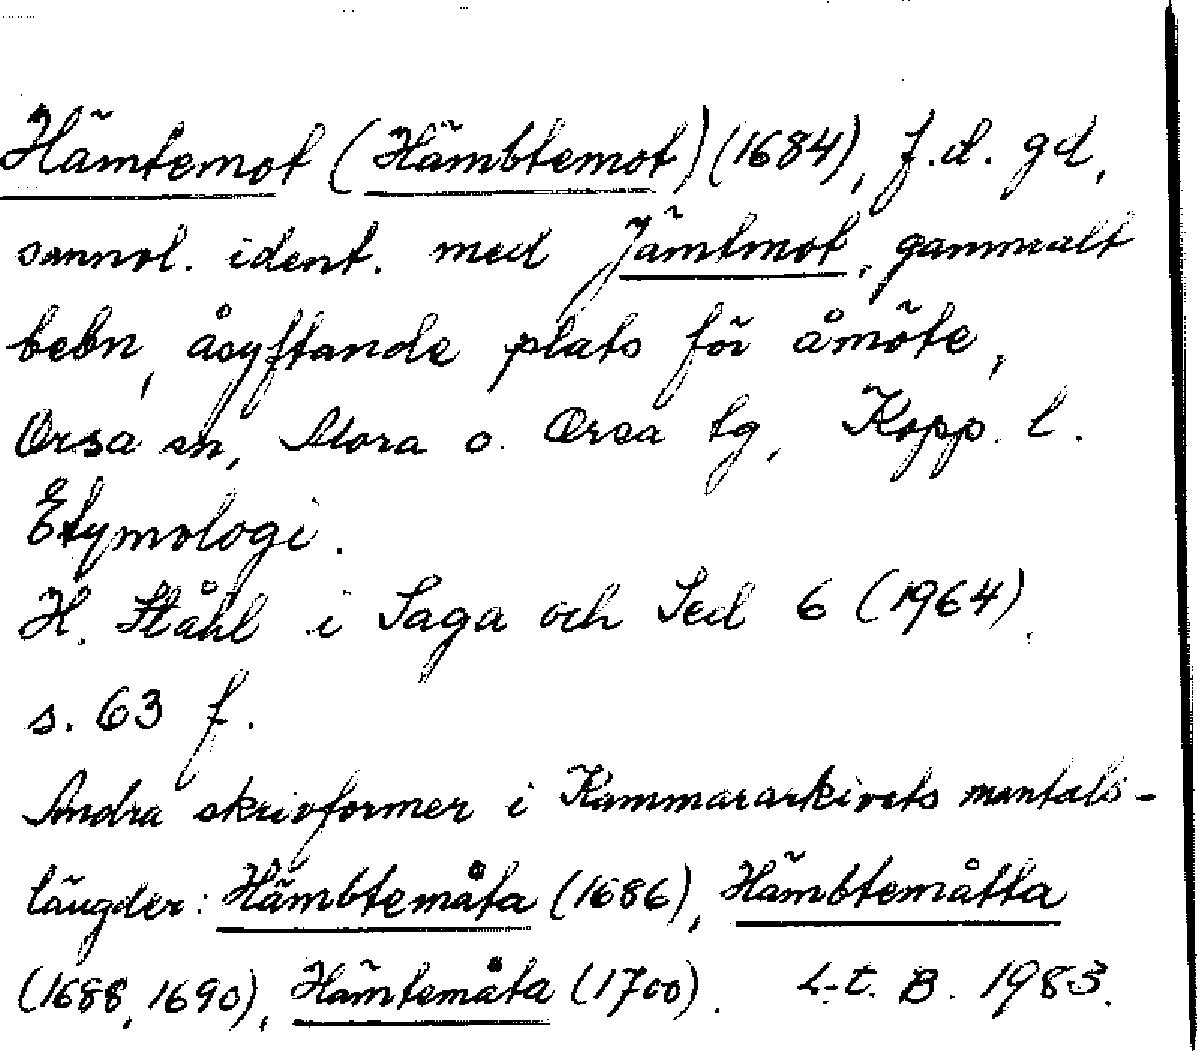 Hämtemot (Hämbtemot) (1684), f.d. gd,
sannol. ident. med Jämtmot, gammalt
bebn, åsyftande plats för åmöte,
Orsa sn, Mora o. Orsa tg, Kopp. l.
Etymologi.
H. Ståhl i Saga och Sed 6 (1964).
s. 63 f.
Andra skrivformer i Kammararkivets mantals-
längder: Hämbtemåta (1686), Hämbtemåtta
(1688, 1690), Hämtemåta (1700). L-t. B. 1983.